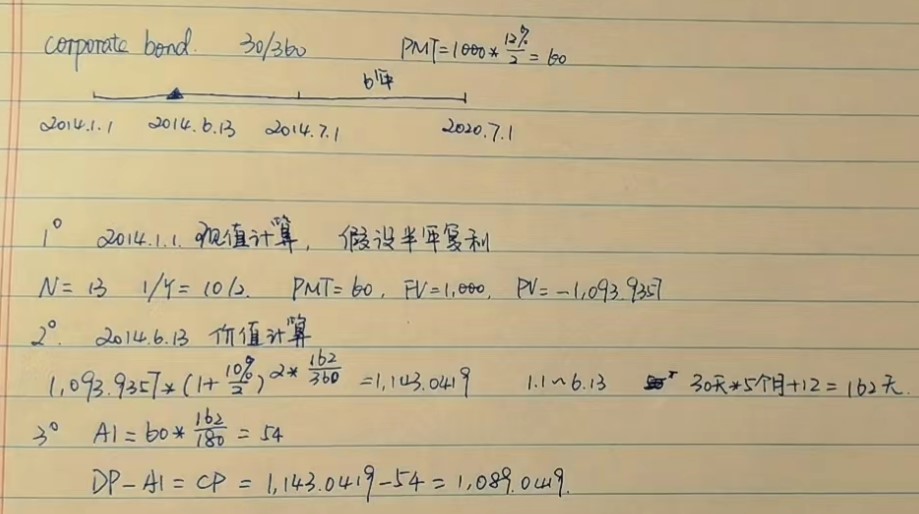 corporate bond. 30/360 PMT=1000*12%/2=60
6年
2014.1.1 2014.6.13 2014.7.1 2020.7.1
1° 2014.1.1. 现值计算, 假设半年复利
N=13 I/Y=10/2. PMT=60, FV=1,000, PV=-1,093.9357
2°. 2014.6.13 价值计算
1,093.9357*(1+10%/2)^2*162/360=1,143.0419 1.1~6.13 30天*5个月+12=162天.
3° AI=60*162/180=54
DP-AI=CP=1,143.0419-54=1,089.0419.